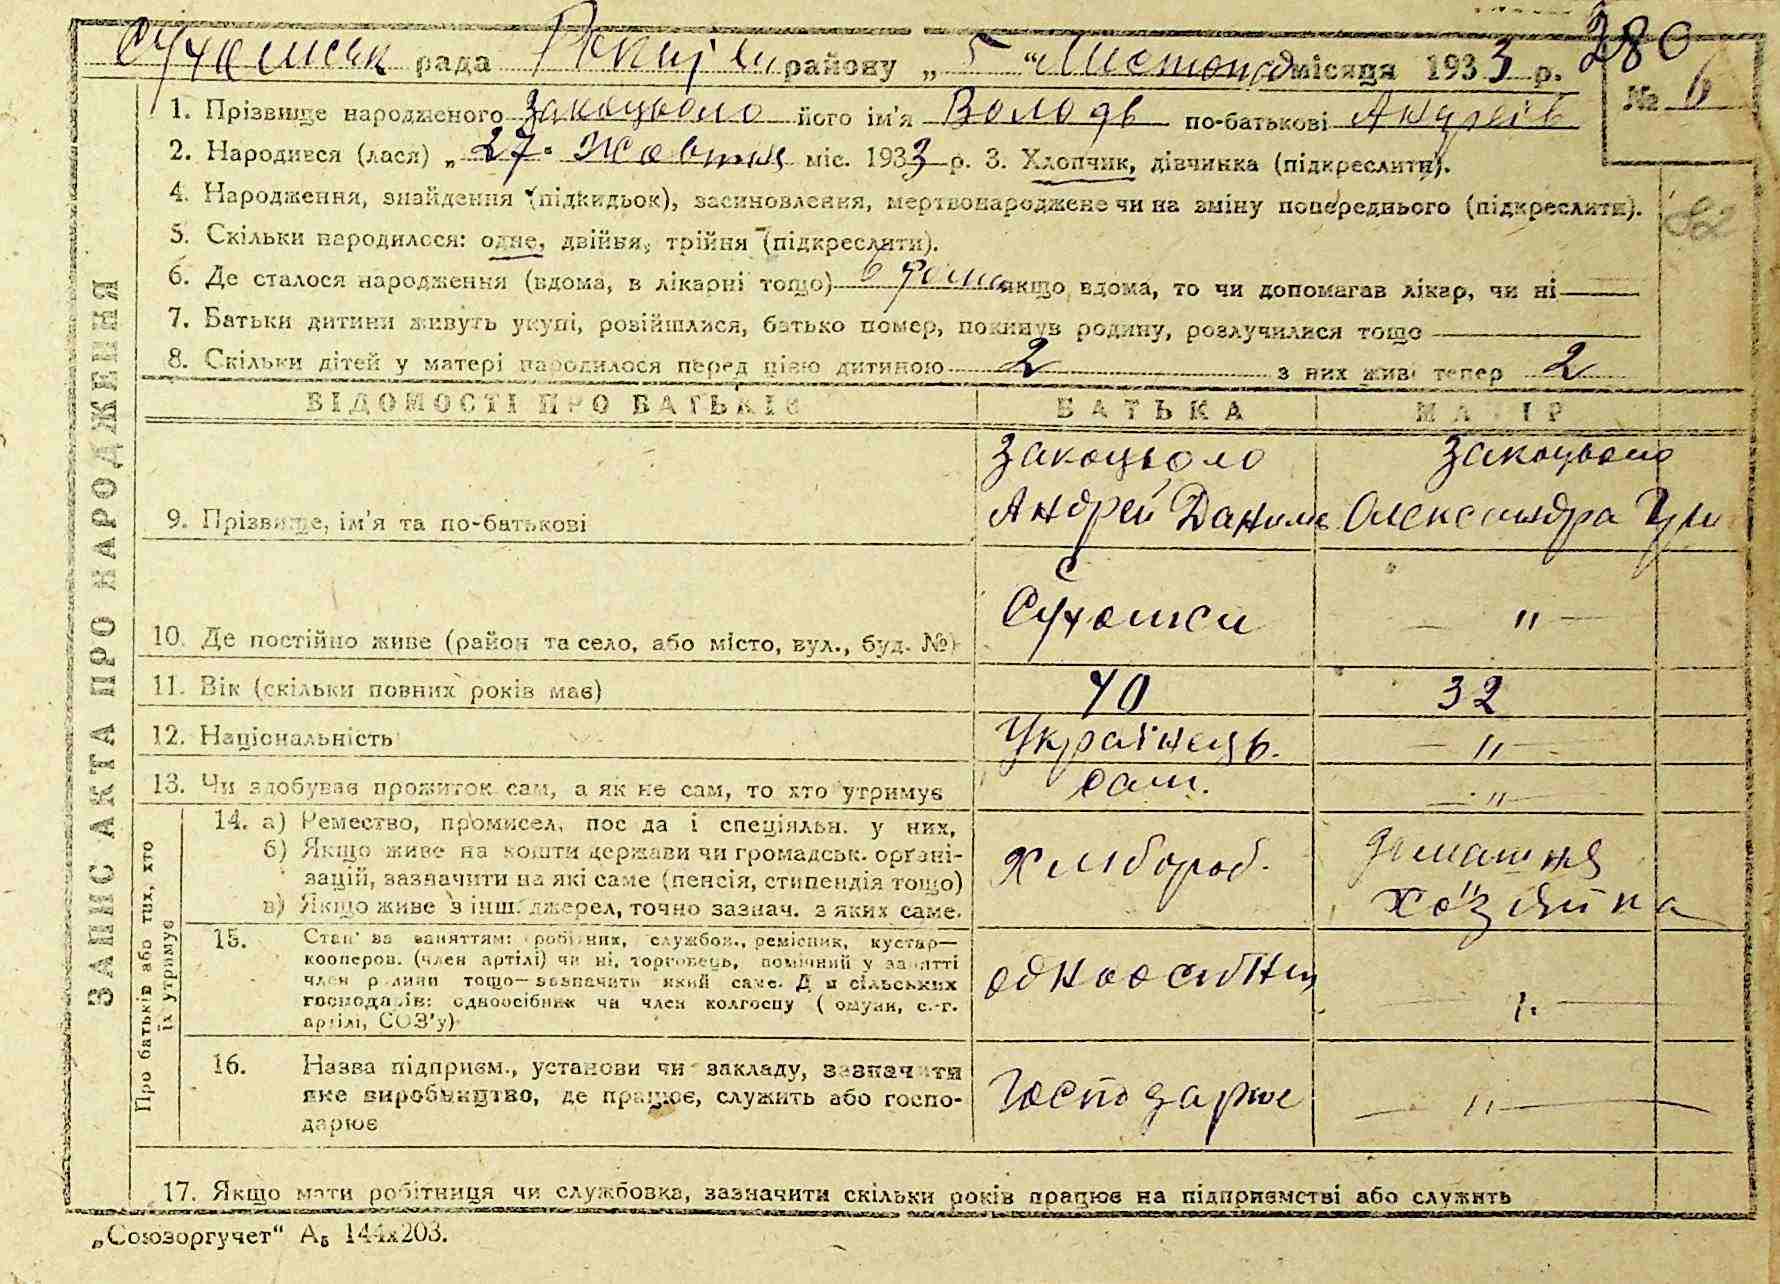 280
рада району „ 5 “ Листопад місяця 1933 р.
№ 6
1. Прізвище народженого Закоцьоло його ім'я Володь по-батькові Андреів
2. Народився (лася) „ 27 Жовтня міс. 1933 р. 3. Хлопчик, дівчинка (підкреслити).
4. Народження, знайдення (підкидьок), засиновлення, мертвонароджене чи на зміну попереднього (підкреслити).
82
5. Скільки народилося: одне, двійня, трійня (підкреслити).
6. Де сталося народження (вдома, в лікарні тощо) якщо вдома, то чи допомагав лікар, чи ні
7. Батьки дитини живуть укупі, розійшлися, батько помер, покинув родину, розлучилися тощо
8. Скільки дітей у матері народилося перед цією дитиною 2 з них живі тепер 2
ЗАПИС АКТА ПРО НАРОДЖЕННЯ
ВІДОМОСТІ ПРО БАТЬКІВ БАТЬКА МАТІР
Закоцьоло Закоцьоло
9. Прізвище, ім'я та по-батькові Андрей Данилів Олександра
с
10. Де постійно живе (район та село, або місто, вул., буд. №) — " —
11. Вік (скільки повних років має) 40 32
12. Національність Українець. — " —
13. Чи здобуває прожиток сам, а як не сам, то хто утримує сам. — " —
Про батьків або тих, хто
їх утримує
14. а) Ремество, промисел, посада і спеціяльн. у них,
б) Якщо живе на кошти держави чи громадськ. орґані-
зацій, зазначити на які саме (пенсія, стипендія тощо)
в) Якщо живе з інш. джерел, точно зазнач. з яких саме.
Хлібороб. домашня
хозяйка
15. Стан за заняттям: робітник, службов., ремісник, кустар—
кооперов. (член артілі) чи ні, торговець, помічний у занятті
член родини тощо—зазначити який саме. Для сільських
господарів: одноосібник чи член колгоспу (комуни, с.-г.
артілі, СОЗ'у)
одноосібник — " —
16. Назва підприєм., установи чи закладу, зазначити
яке виробництво, де працює, служить або госпо-
дарює
Господарює — " —
17. Якщо мати робітниця чи службовка, зазначити скільки років працює на підприємстві або служить
„Союзоргучет“ А₅ 144х203.